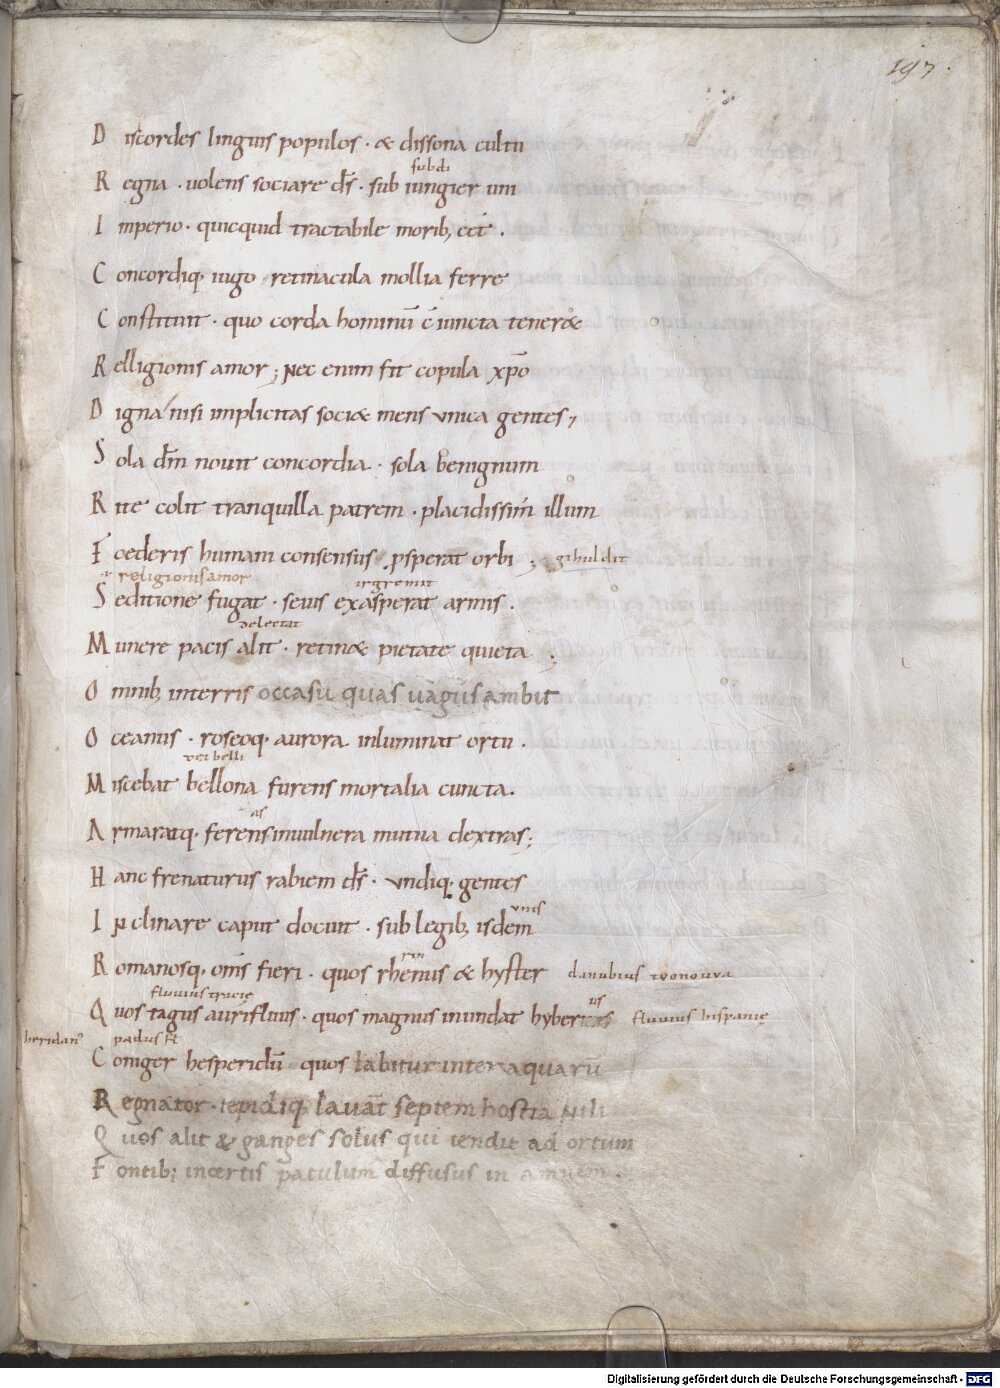 197.
D iscordes linguis populos · & dissona cultu
subdi
R egna · uolens sociare d̄s · sub iungier uni
I mperio · quicquid tractabile morib; eēt .
C oncordiq; iugo · retinacula mollia ferre
C onstituit · quo corda hominū ē iuncta teneræ
R elligionis amor ; Nec enim fit copula xp̄o
D igna nisi implicitas sociæ mens vnica gentes ;
S ola dm̄ nouit concordia · sola benignum
R ite colit tranquilla patrem · placidissim̄ illum
F oederis humani consensus ꝓsperat orbi ; gihuldit
religionis amor irgremit
S editione fugat · seuis exasperat armis .
delectat
M unere pacis alit · retinæ pietate quieta ;
O mnib; interris occasu quas uagus ambit
O ceanus · roseoq; aurora inluminat ortu .
dei belli
M iscebat bellona furens mortalia cuncta .
as
A rmaratq; ferens inuulnera mutua dextras ;
H anc frenaturus rabiem d̄s · vndiq; gentes
vnis
I N clinare caput docuit · sub legib; isdem
rin
R omanosq; om̄s fieri · quos rhenus & hyster danubius tuonouua
fluuius tracię us
Q uos tagus aurifluus · quos magnus inundat hyberus fluuius hispanię
heridan⁹ padus
C orniger hesperidū quos labitur inter aquarū
R egnator · tepidiq; lauat̄ septem hostia Nili
Q uos alit & ganges solus qui tendit ad ortum
F ontib; incertis patulum diffusus in amnem .
Digitalisierung gefördert durch die Deutsche Forschungsgemeinschaft - DFG